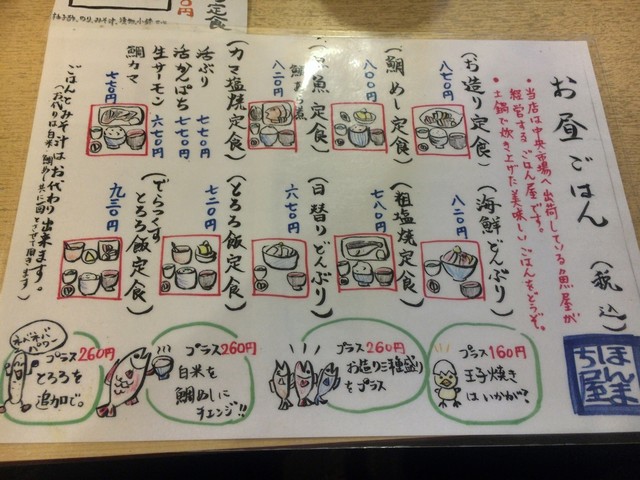 お昼ごはん（税込）
・当店は中央市場へ出荷している魚屋が
経営するごはん屋です。
・土鍋で炊き上げた美味しいごはんをどうぞ。
ほんま
ち屋
（お造り定食）
八七〇円
（鯛めし定食）
八〇〇円
魚定食）
八二〇円
（カマ塩焼定食）
活ぶり 七七〇円
活かんぱち 七七〇円
生サーモン 六七〇円
鯛カマ
七七〇円
（海鮮どんぶり）
八二〇円
（粗塩焼定食）
七八〇円
（日替りどんぶり）
六七〇円
（とろろ飯定食）
七二〇円
（でらっくす
とろろ飯定食）
九三〇円
ごはんとみそ汁はお代わり出来ます。
プラス260円
とろろを
追加で。
ネバネバ
パワー
プラス260円
白米を
鯛めしに
チェンジ!!
プラス260円
お造り三種盛り
をプラス
プラス160円
玉子焼き
はいかが?